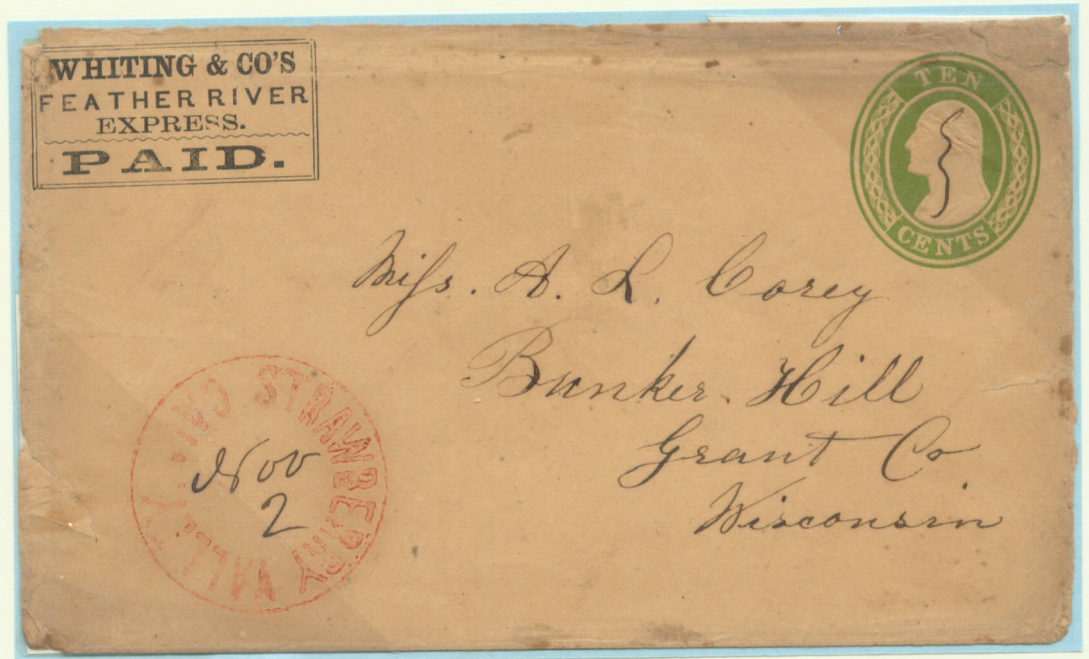 WHITING & CO'S
FEATHER RIVER
EXPRESS.
PAID.
TEN
CENTS
Miss. A. L. Corey
Bunker. Hill
Grant Co
Wisconsin
STRAWBERRY VALLEY
Nov
2